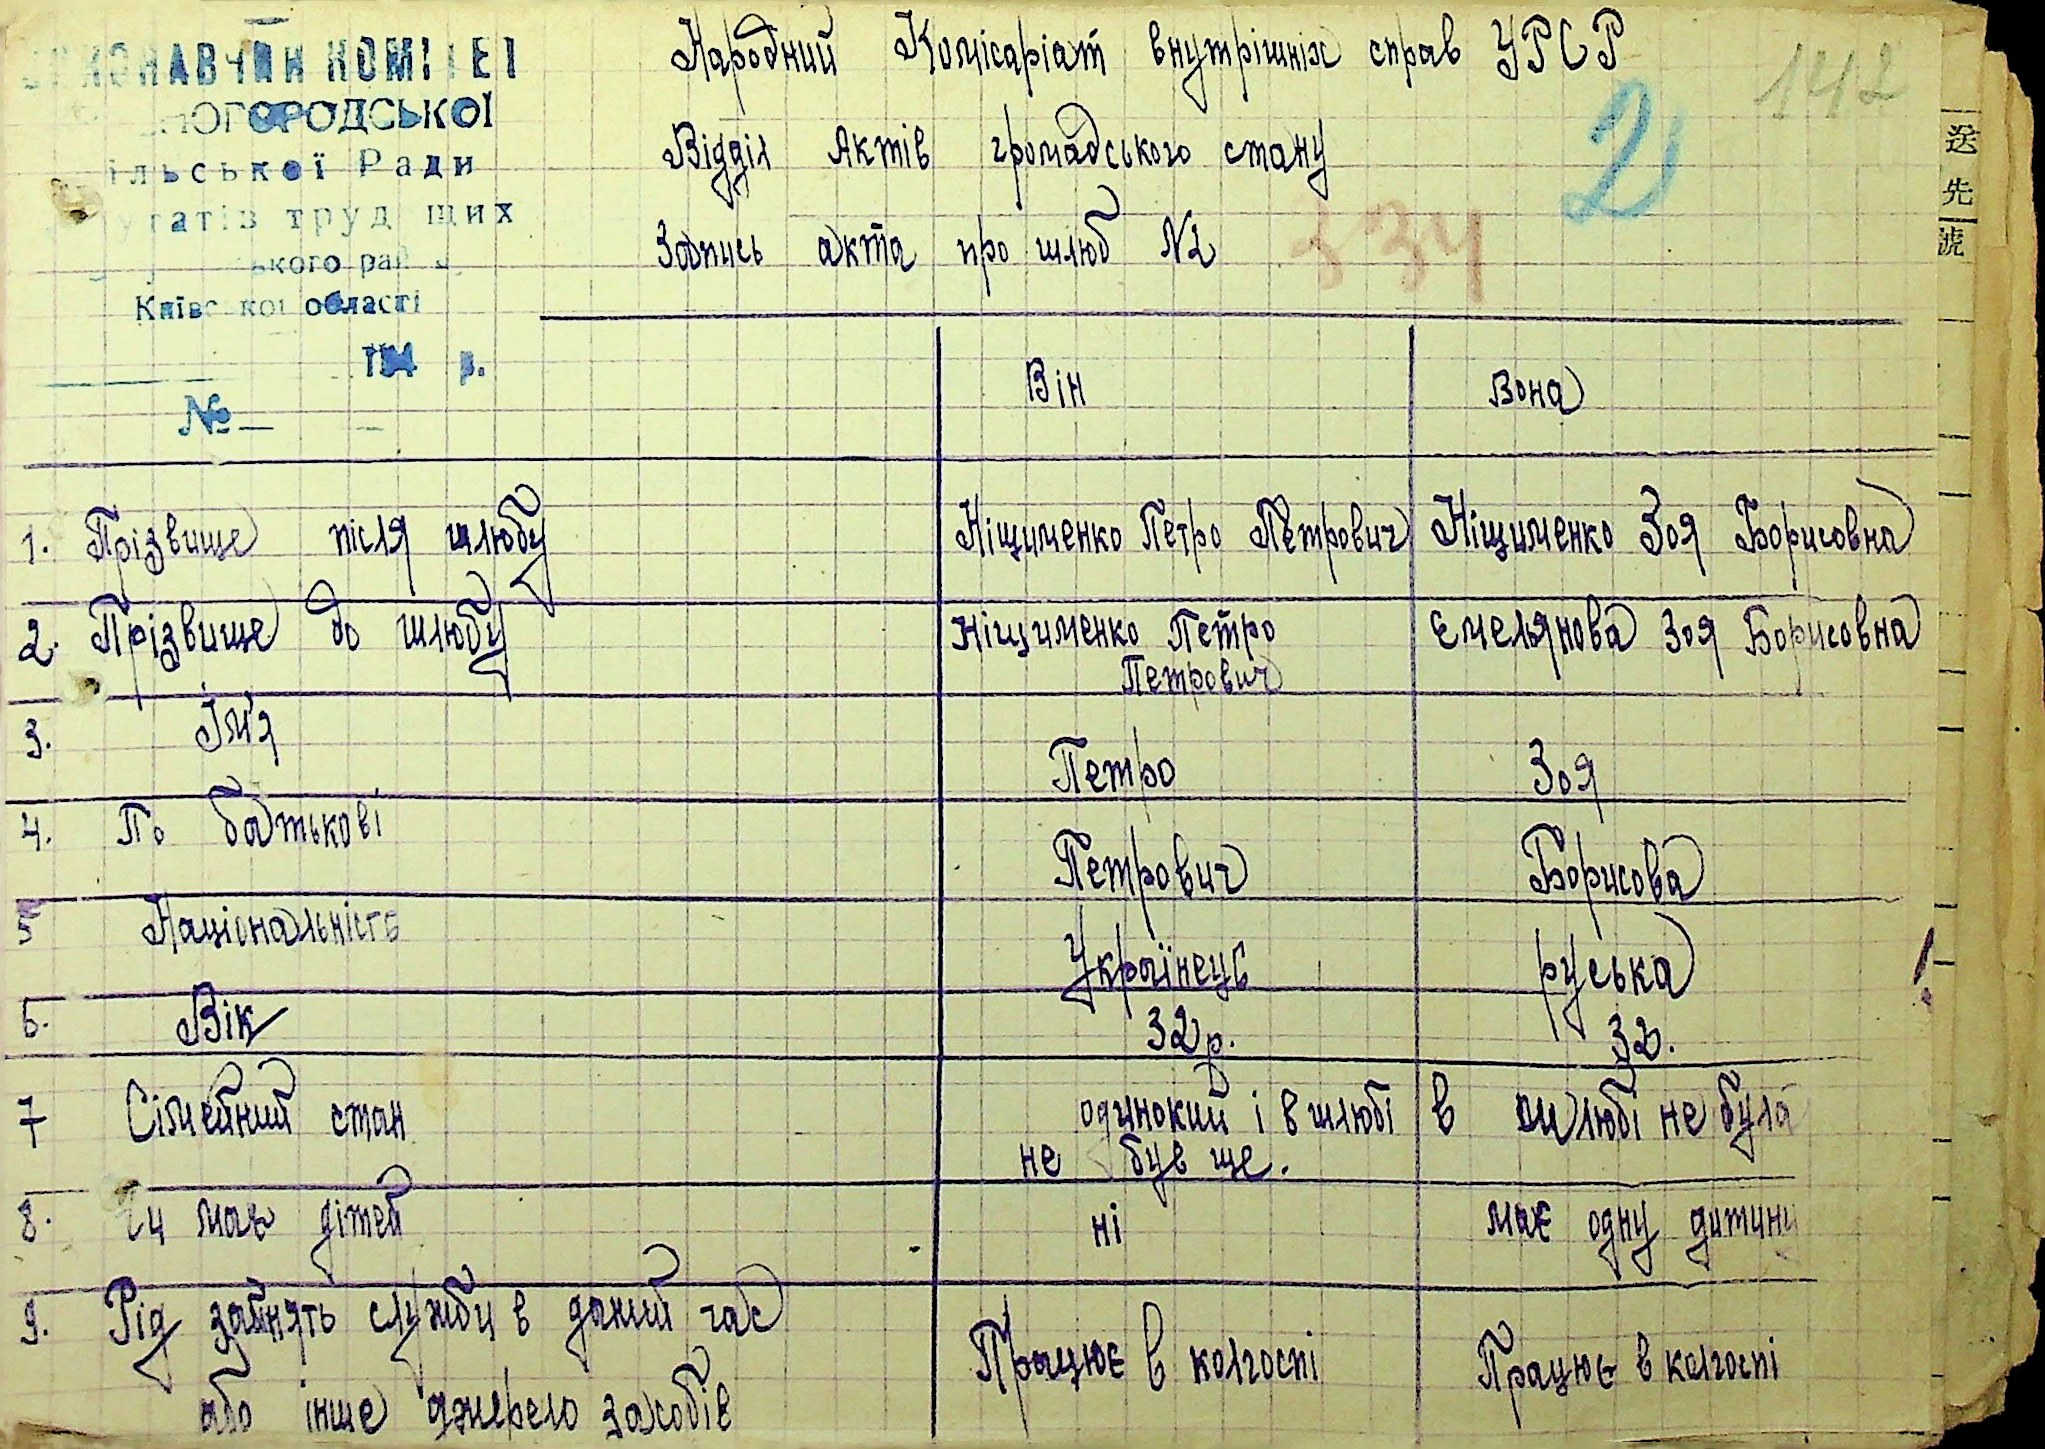 Народний Комісаріат внутрішніх справ УРСР
Відділ Актів громадського стану
Запись акта про шлюб №2
334
2
142
КОМІТЕТ
Ради
Київської області
194 р.
№
Він Вона
1. Прізвище після шлюбу Ніщименко Петро Петрович Ніщименко Зоя Борисовна
2. Прізвище до шлюбу Ніщименко Петро Петрович Емельянова Зоя Борисовна
3. Ім'я Петро Зоя
4. По батькові Петрович Борисова
5 Національність Українець руська
6. Вік 32 р. 32.
7 Сімейний стан одинокий і в шлюбі не був ще. в шлюбі не була
8. Чи має дітей ні має одну дитину
9. Рід занять служби в даний час Працює в колгоспі Працює в колгоспі
або інше джерело засобів
送
先
號